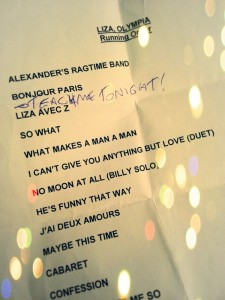 LIZA, OLYMPIA
Running
ALEXANDER'S RAGTIME BAND
BONJOUR PARIS
TEACH ME TONIGHT!
LIZA AVEC Z
SO WHAT
WHAT MAKES A MAN A MAN
I CAN'T GIVE YOU ANYTHING BUT LOVE (DUET)
NO MOON AT ALL (BILLY SOLO,
HE'S FUNNY THAT WAY
J'AI DEUX AMOURS
MAYBE THIS TIME
CABARET
CONFESSION ME SO